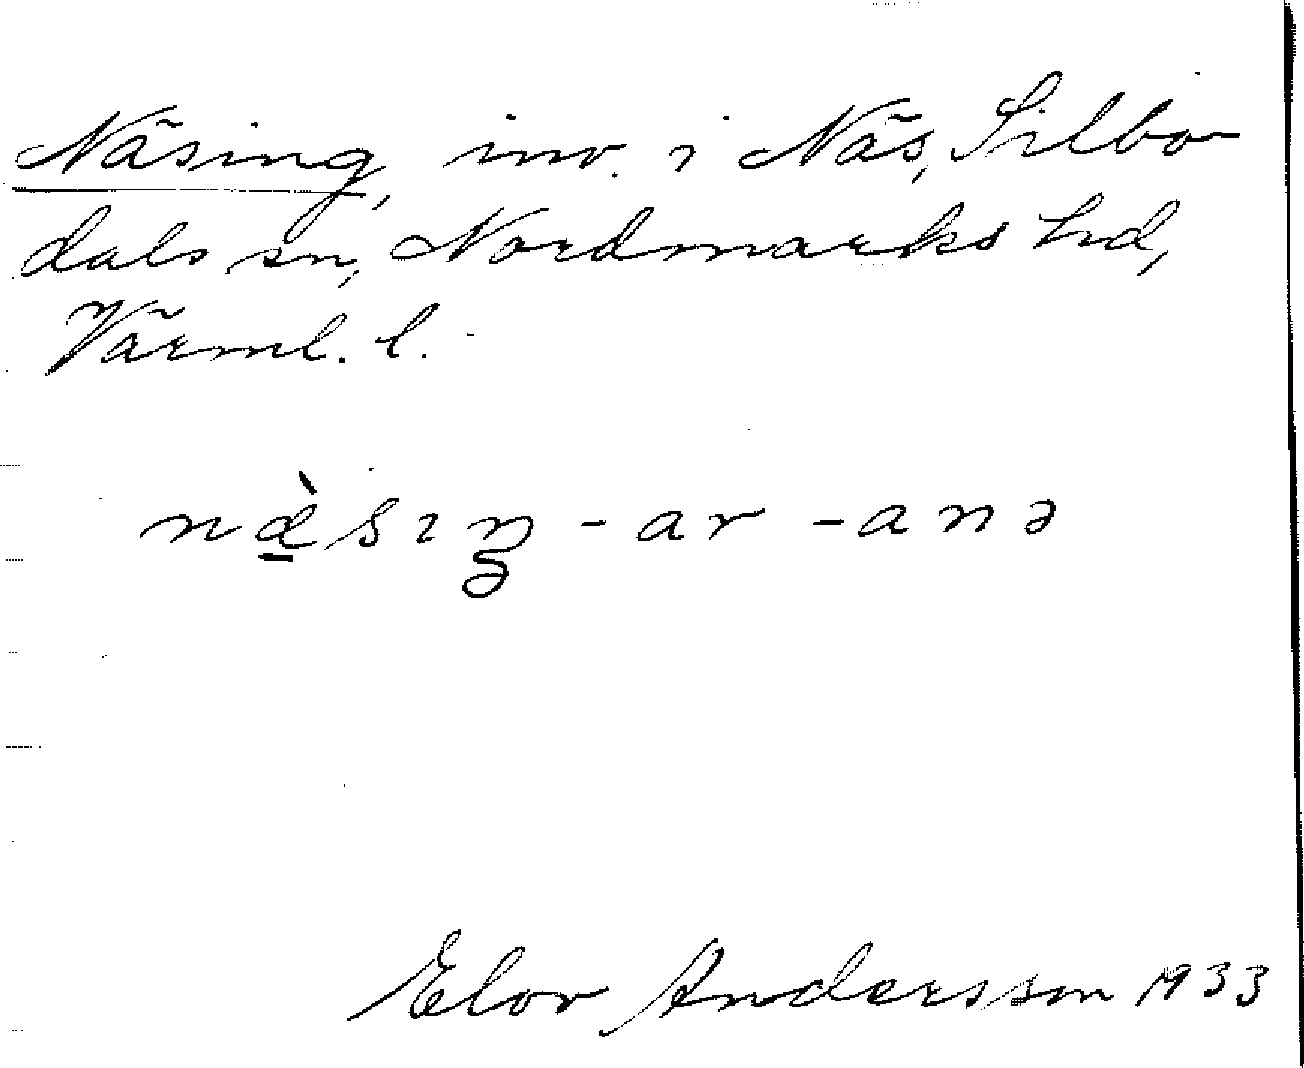 Näsing, inv. i Näs, Silbo
dals sn, Nordmarks hd,
Värml. l.
næ̠̀sıŋ - ar - anə
Elov Andersson 1933